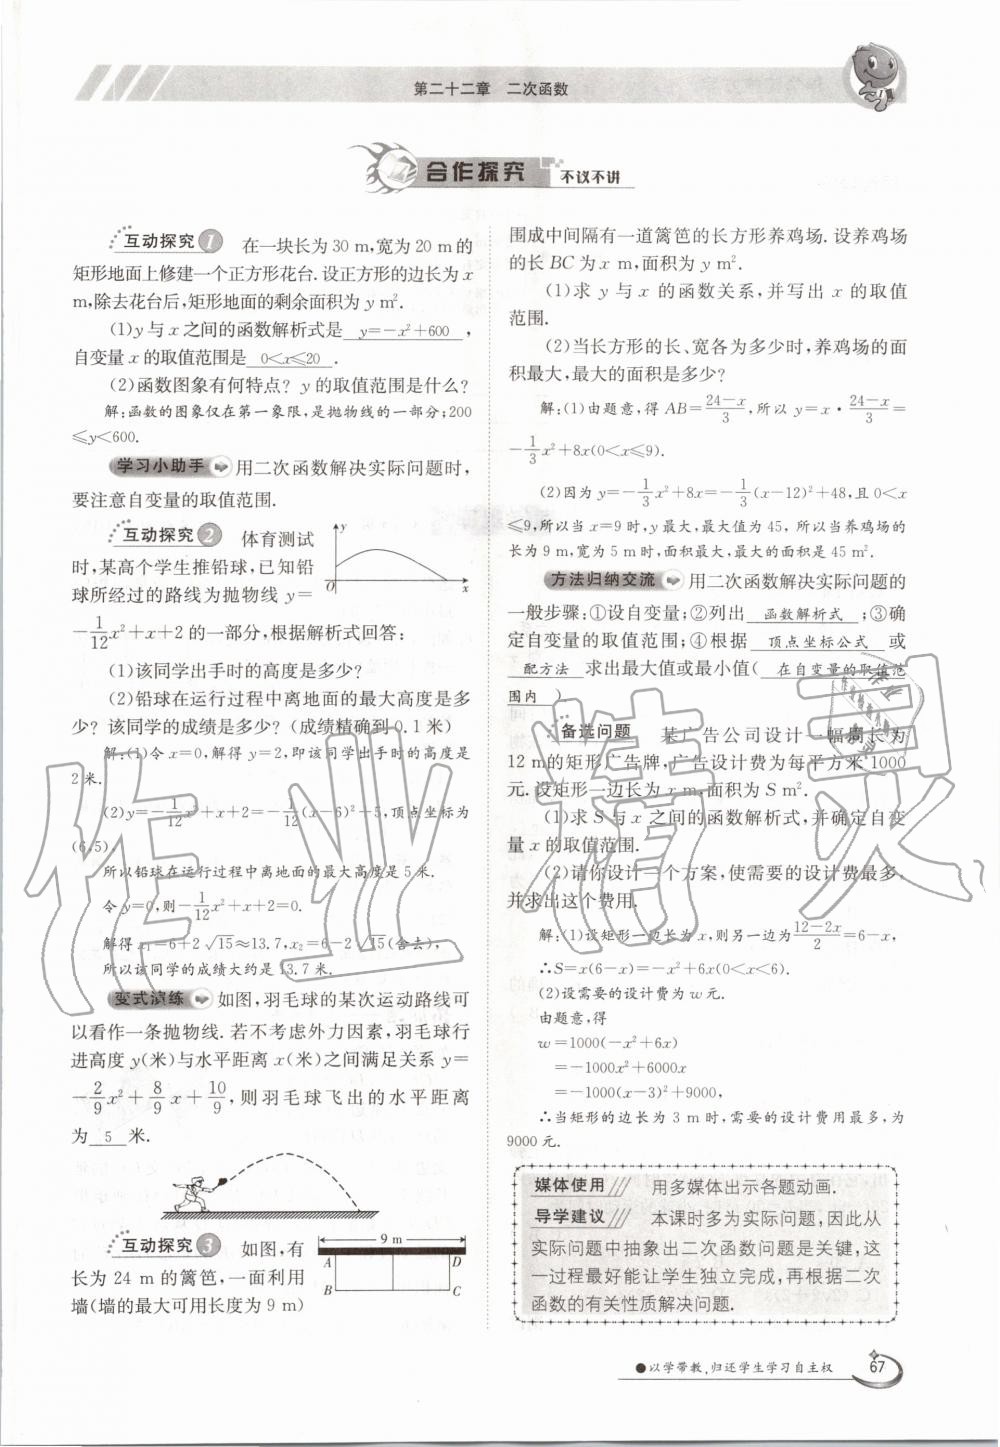 第二十二章 二次函数
合作探究 不议不讲
互动探究1 在一块长为 30 m,宽为 20 m 的
矩形地面上修建一个正方形花台.设正方形的边长为 x
m,除去花台后,矩形地面的剩余面积为 y m².
(1)y 与 x 之间的函数解析式是 y=-x²+600 ,
自变量 x 的取值范围是 0<x≤20 .
(2)函数图象有何特点? y 的取值范围是什么?
解:函数的图象仅在第一象限,是抛物线的一部分;200
≤y<600.
学习小助手 用二次函数解决实际问题时,
要注意自变量的取值范围.
互动探究2 体育测试
时,某高个学生推铅球,已知铅
球所经过的路线为抛物线 y=
-1/12x²+x+2 的一部分,根据解析式回答:
(1)该同学出手时的高度是多少?
(2)铅球在运行过程中离地面的最大高度是多
少? 该同学的成绩是多少?(成绩精确到 0.1 米)
解:(1)令 x=0,解得 y=2,即该同学出手时的高度是
2 米.
(2)y=-1/12x²+x+2=-1/12(x-6)²+5,顶点坐标为
(6,5),
所以铅球在运行过程中离地面的最大高度是 5 米.
令 y=0,则-1/12x²+x+2=0.
解得 x₁=6+2√15≈13.7,x₂=6-2√15(舍去),
所以该同学的成绩大约是 13.7 米.
变式演练 如图,羽毛球的某次运动路线可
以看作一条抛物线.若不考虑外力因素,羽毛球行
进高度 y(米)与水平距离 x(米)之间满足关系 y=
-2/9x²+8/9x+10/9,则羽毛球飞出的水平距离
为 5 米.
互动探究3 如图,有
长为 24 m 的篱笆,一面利用
墙(墙的最大可用长度为 9 m)
y
O
x
9 m
A
D
B
C
围成中间隔有一道篱笆的长方形养鸡场.设养鸡场
的长 BC 为 x m,面积为 y m².
(1)求 y 与 x 的函数关系,并写出 x 的取值
范围.
(2)当长方形的长、宽各为多少时,养鸡场的面
积最大,最大的面积是多少?
解:(1)由题意,得 AB=24-x/3,所以 y=x·24-x/3=
-1/3x²+8x(0<x≤9).
(2)因为 y=-1/3x²+8x=-1/3(x-12)²+48,且 0<x
≤9,所以当 x=9 时,y 最大,最大值为 45,所以当养鸡场的
长为 9 m,宽为 5 m 时,面积最大,最大的面积是 45 m².
方法归纳交流 用二次函数解决实际问题的
一般步骤:①设自变量;②列出 函数解析式 ;③确
定自变量的取值范围;④根据 顶点坐标公式 或
配方法 求出最大值或最小值( 在自变量的取值范
围内 )
备选问题 某广告公司设计一幅周长为
12 m 的矩形广告牌,广告设计费为每平方米 1000
元.设矩形一边长为 x m,面积为 S m².
(1)求 S 与 x 之间的函数解析式,并确定自变
量 x 的取值范围.
(2)请你设计一个方案,使需要的设计费最多,
并求出这个费用.
解:(1)设矩形一边长为 x,则另一边为12-2x/2=6-x,
∴S=x(6-x)=-x²+6x(0<x<6).
(2)设需要的设计费为 w 元.
由题意,得
w=1000(-x²+6x)
=-1000x²+6000x
=-1000(x-3)²+9000,
∴当矩形的边长为 3 m 时,需要的设计费用最多,为
9000 元.
媒体使用 用多媒体出示各题动画.
导学建议 本课时多为实际问题,因此从
实际问题中抽象出二次函数问题是关键,这
一过程最好能让学生独立完成,再根据二次
函数的有关性质解决问题.
●以学带教,归还学生学习自主权 67
作业精灵